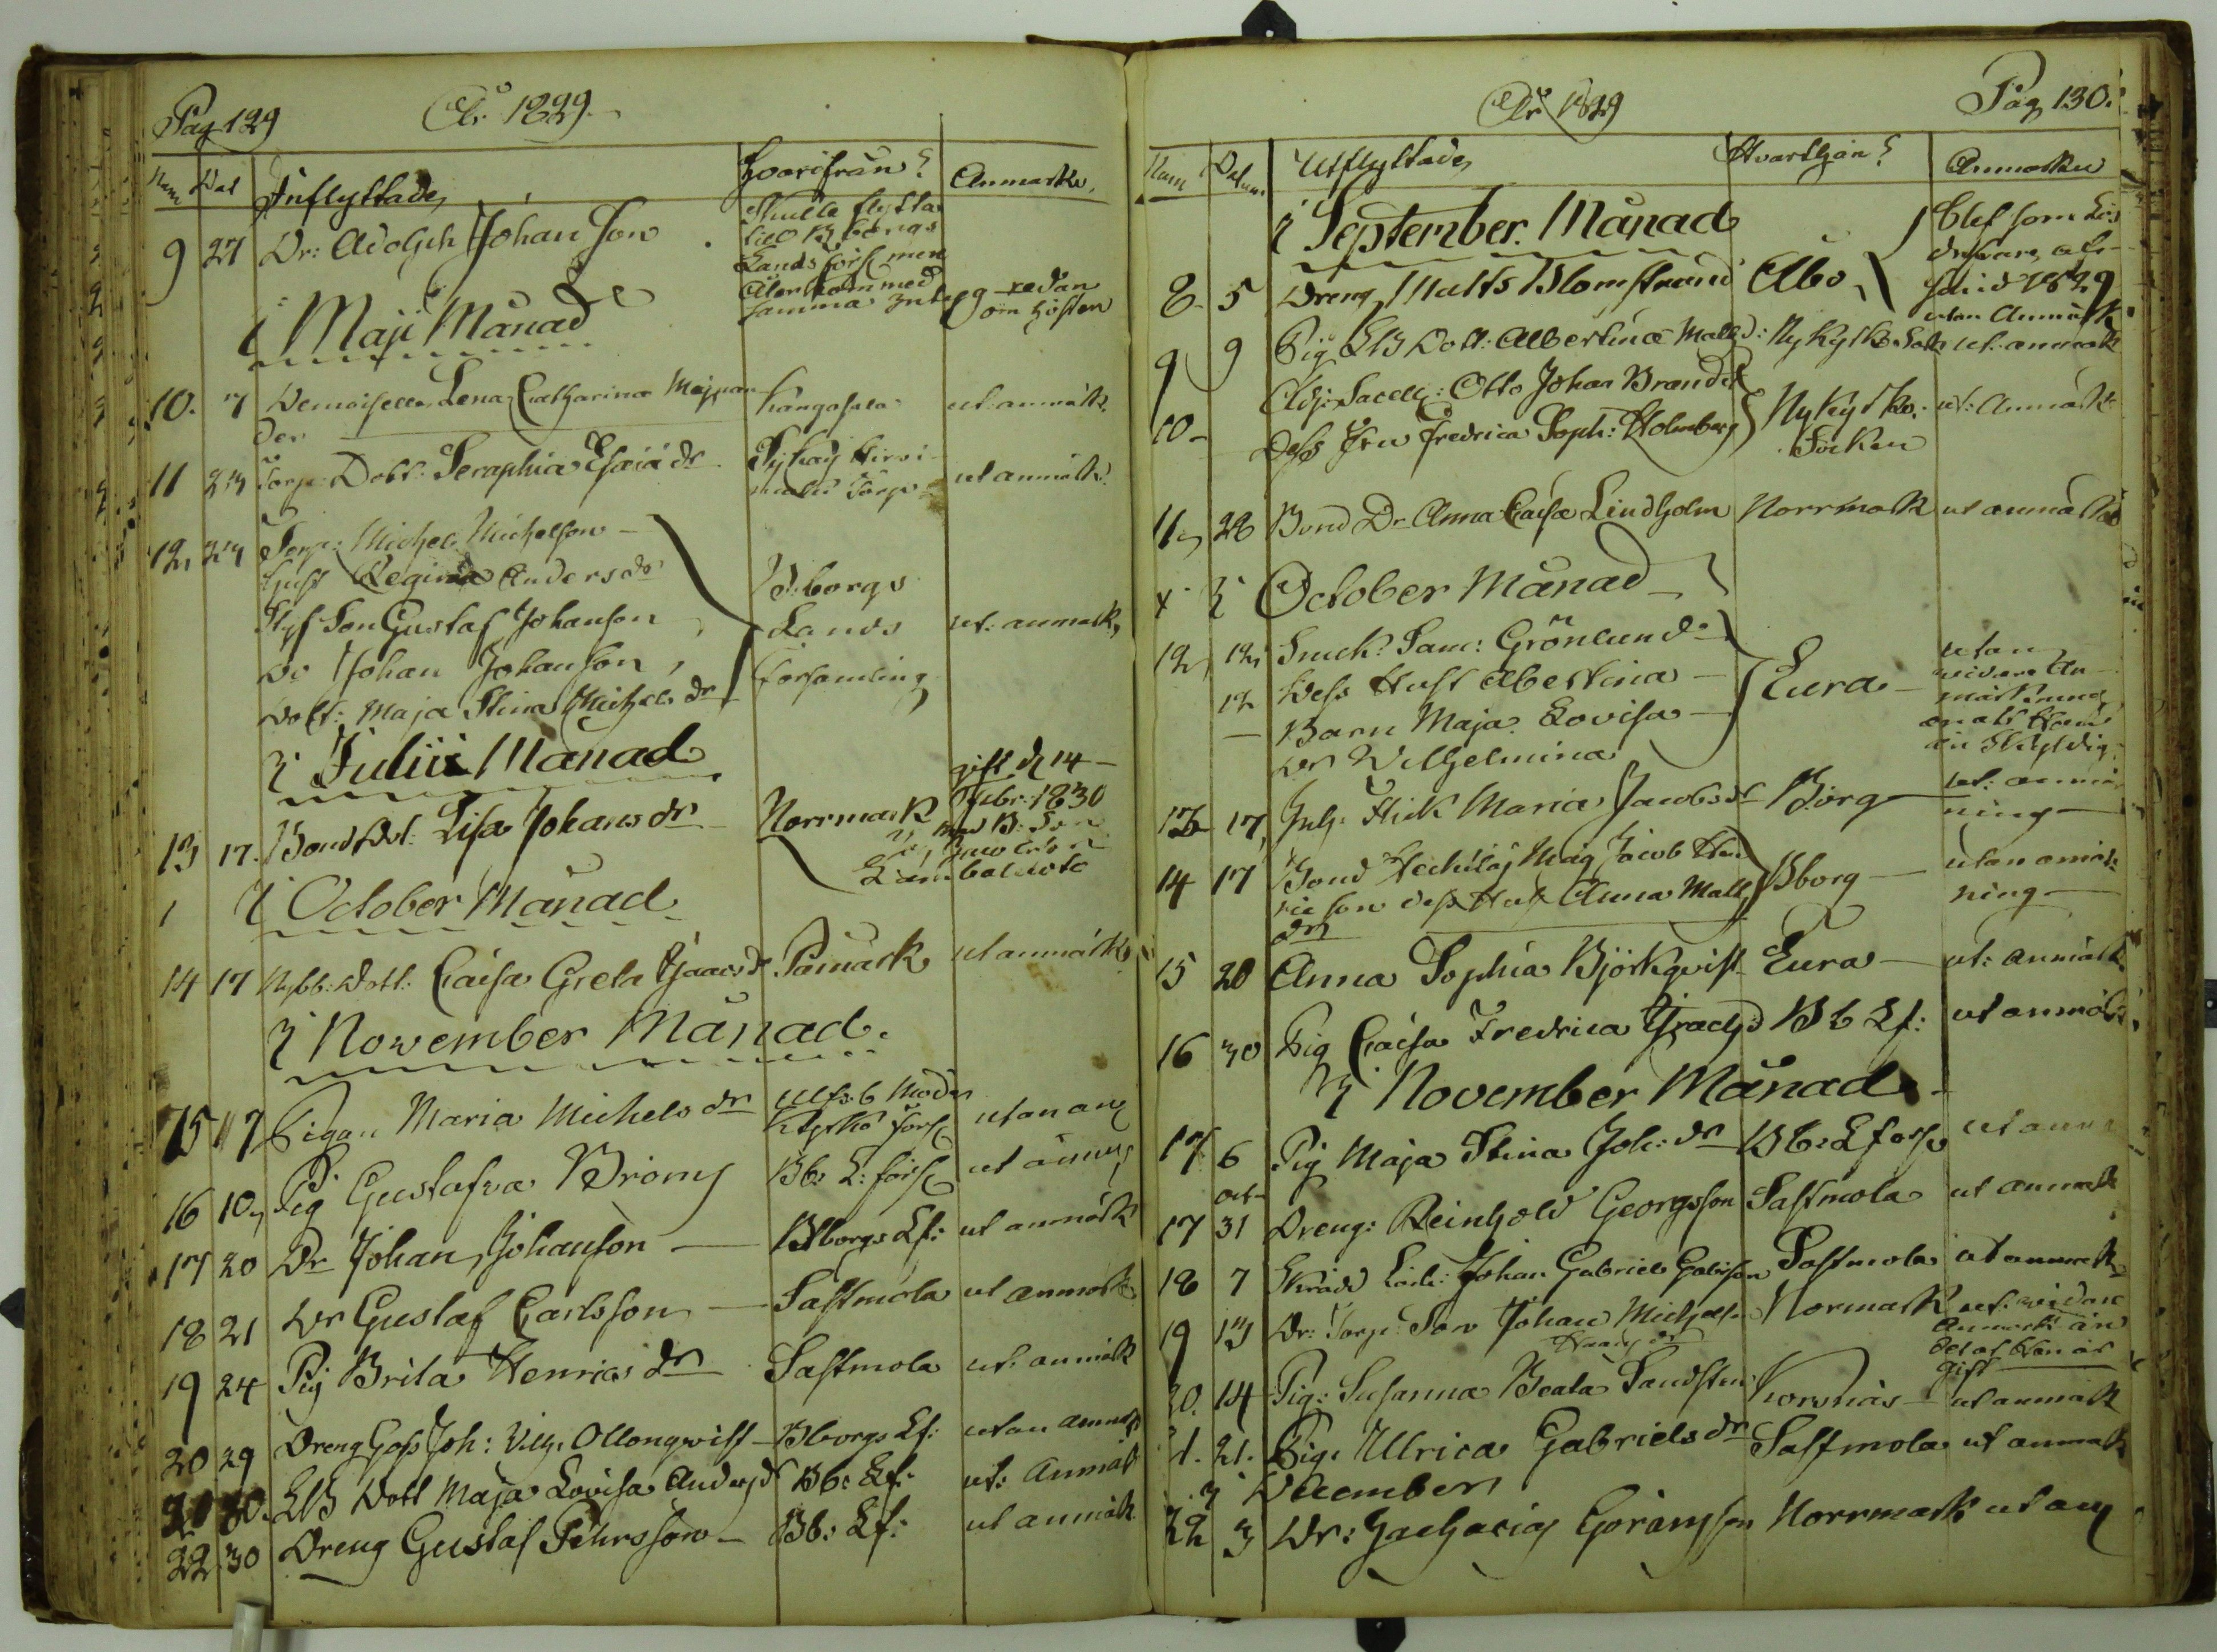 Pag 129
År 1829
Num Dat Inflyttade, Hvarifrån? Anmärkn,
9 27 Dr: Adolph Johan Son
Skulle flytta
till Bborgs
Lands förs men
Återkom med
samma redan
om hösten
i Maji Månad
10. 7 Demoiselle Lena Catharina
der Kangasala ut: anmärk.
11 24 Torp: Dott: Seraphia Esaiæ dr ut anmärk:
12, 24 Torp: Michel Michelson
Hust Regina Anders dr
Styf Son Gustaf Johanson
Do Johan Johanson,
Dott: Maja Stina Michels dr
Bborgs
Lands
Församling
ut: anmärk,
i Julii Månad
13 17. Bond Dot: Lisa Johans dr Norrmark
gift d 14
Febr: 1830
med B: Son
i October Månad
14 17 Nybb: Dott: Caisa Greta Isaacs dr Påmark ut anmärk
i November Månad.
15 7 Pigan Maria Michels dr Ulfsb Moder
Kyrko förs utan anm
16 10, Pig Gustafva Bb: L: förs ut anm
17 20 Dr Johan Johanson Bborgs Lf: ut anmärk
18 21 Dr Gustaf Carlsson Sastmola ut anmärk
19 24 Pig Brita Henrics dr Sastmola ut: anmärk
20 29 Dreng Goss Joh: Vilh: Ollonqvist Bborgs Lf: utan anmärk
21 30. Dott Maja Lovisa Anders dr Bb: Lf: ut: Anmärk
22 30 Dreng Gustaf Pehrsson Bb: Lf: ut anmärk
Pag 130.
År 1829
Num Datum Utflyttade, Hvarthän? Anmärkn
i September. Månad
8. 5 Dreng Matts Blomstrand Åbo,
1829
utan Anmärk
9 9 Pig Dott: Albertina Matts d: Nykyrko Sokn ut: anmärk
10 Adj: Sacell: Otto Johan Brander
Dess Fru Fredrica Soph: Holmberg
Nykyrko.
Socken
ut: Anmärk
11, 28 Bond Dr Anna Caisa Lindholm Norrmark ut anmärkn
i October Månad
12, 12, Sam: Grönlund
12 Dess Hust Albertina
Barn Maja Lovisa
Do Wilhelmina
Eura
utan
vidare An
märkning
13 17, Inh: Maria Jacobs dr Bborg ut: anmärk
ning
14 17 Bond Mag Jacob Hen
ric son dess Hust Anna Matts
dr
Bborg utan anmärk
ning
15 20 Anna Sophia Björkqvist Eura ut: anmärk
16 30 Pig Caisa Fredrica Bb Lf: ut anmärk
i November Månad.
17 6 Pig Maja Stina Joh: dr Bb: L förs ut anm
oct
17 31 Dreng: Reinhold Georgsson Sastmola ut anmärk
18 7 Skrädd Lärl: Johan Gabriel Gabrisson Sastmola ut anmärk
19 13 Dr: Torp: Son Johan Michelson Normark ut: vidare
anmärk än
det at Han är
gift
20. 14 Pig: Susanna Beata Sandsten Korsnäs ut anmärk
21. 21. Pig: Ulrica Gabriels dr Sastmola ut anmärk
i December
22 3 Dr: Zacharias Göransson Norrmark ut anm